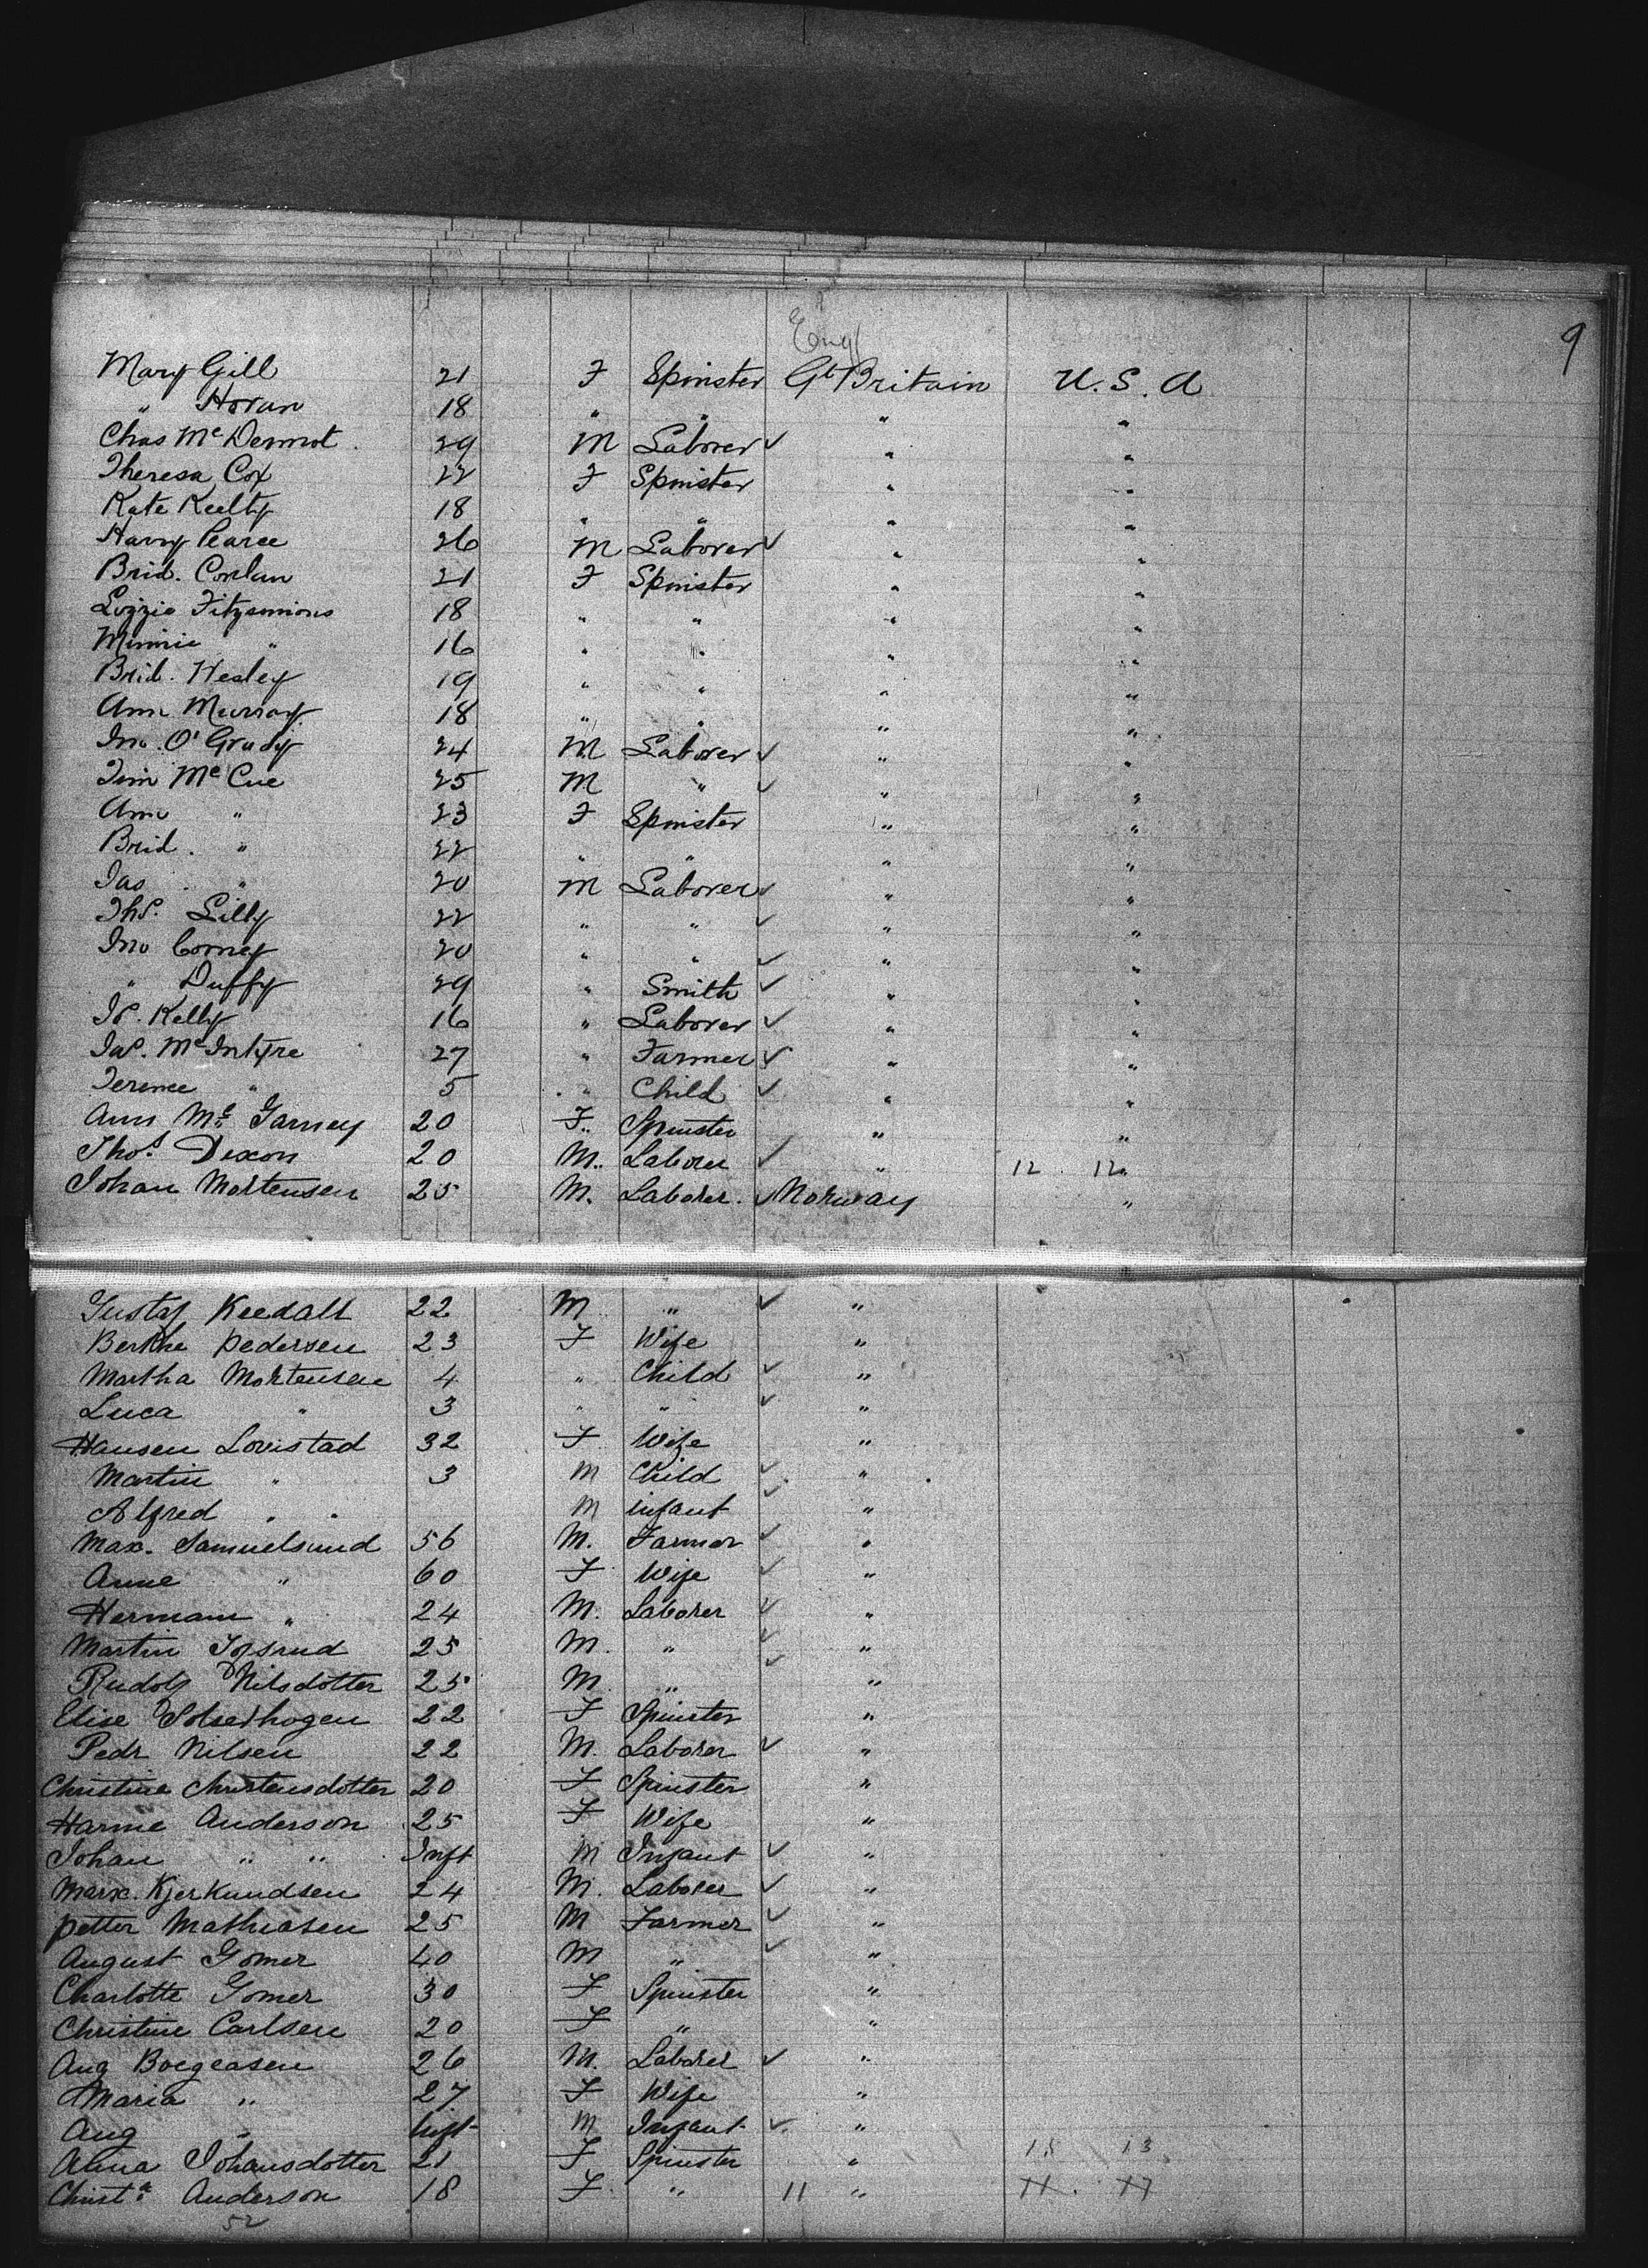 9
Engl
Mary Gill 21 F Spinster Gt Britain U.S.A
" Horan 18 " " " "
Chas McDermot 29 M Laborer ✓ " "
Theresa Cox 22 F Spinster " "
Kate Keelty 18 " " " "
Harry Pearce 26 M Laborer ✓ " "
Brid. Conlan 21 F Spinster " "
Lizzie Fitzsimions 18 " " " "
Minnie " 16 " " " "
Brid. Hesley 19 " " " "
Ann Murray 18 " " " "
Jno. O'Grady 24 M Laborer ✓ " "
Jim McCue 25 M " ✓ " "
Ann " 23 F Spinster " "
Brid. " 22 " " " "
Jas " 20 M Laborer ✓ " "
Ths. Lilly 22 " " ✓ " "
Jno Corney 20 " " ✓ " "
" Duffy 29 " Smith ✓ " "
Js. Kelly 16 " Laborer ✓ " "
Jas. McIntyre 27 " Farmer ✓ " "
Terence " 5 " Child ✓ " "
Ann Mc Garney 20 F " Spinster " "
Thos. Dixon 20 M " Laborer ✓ " 12 . 12 "
Johan Mortensen 25 M. Laborer. ✓ Norway "
Gustaf Keedall 22 M " ✓ "
Berthe Pedersen 23 F Wife "
Martha Mortensen 4 " Child ✓ "
Luca " 3 " " ✓ "
Hansen Lovistad 32 F Wife "
Martin " 3 M Child ✓ "
Alfred " " M infant ✓ "
Max. Samuelsund 56 M. Farmer ✓ "
Anne " 60 F Wife ✓ "
Hermann " 24 M. Laborer ✓ "
Martin 25 M. " ✓ "
Rudolf Nilsdotter 25 M " ✓ "
Elise 22 F Spinster "
Pedr Nilsen 22 M. Laborer ✓ "
Christine Christensdotter 20 F Spinster "
Harine Anderson 25 F Wife "
Johan " " Inft M Infant ✓ "
Marx. Kjerkundsen 24 M. Laborer ✓ "
Petter Mathiasen 25 M Farmer ✓ "
August Gomer 40 M " ✓ "
Charlotte Gomer 30 F Spinster "
Christine Carlsen 20 F " "
Aug Boegeasen 26 M. Laborer ✓ "
Maria " 27 F Wife "
Aug " Inft M Infant ✓ "
Alma Johansdotter 21 F Spinster " 13
Christ.a Anderson 18 F " 11 "
52